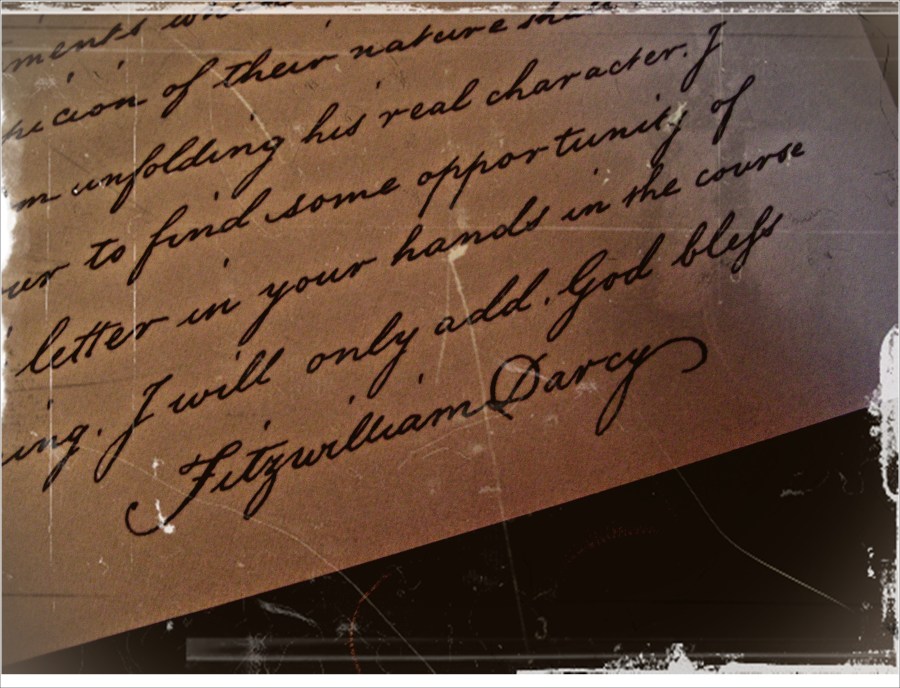 ments
picion of their nature shall
m unfolding his real character. I
our to find some opportunity of
letter in your hands in the course
ing. I will only add. God bleſs
Fitzwilliam Darcy